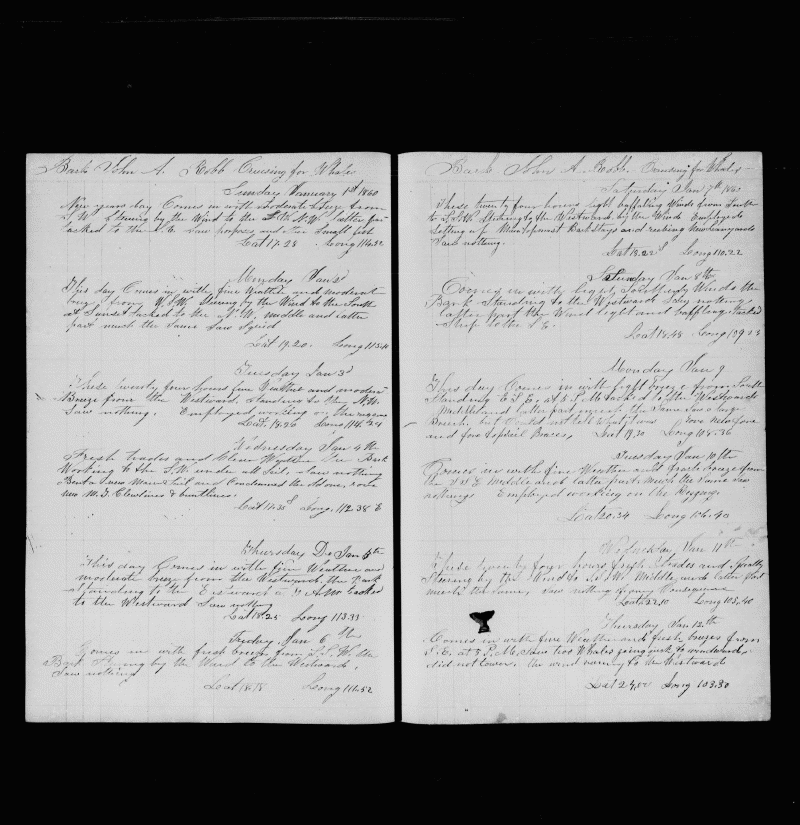 Bark John A. Robb Cruising for Whales
Sunday January 1st 1860
New years day Comes in with Moderate breeze from
S.W. Steering by the Wind to the N.W. latter part
tacked to the S.E. Saw porpoises and
Lat 17.28 Long 114.52
Monday Jan 2
This day Comes in with fine Weather and moderate
breeze from W.S.W. Steering by the Wind to the South
at Sunset tacked to the N.W. middle and latter
part much the same Saw
Lat 19.20. Long 113
Tuesday Jan 3d
These twenty four hours fine Weather and moderate
Breeze from the Westward. Standing to the N.W.
Saw nothing. Employed working on the rigging
Lat. 18.26 Long 114.24
Wednesday Jan 4th
Fresh trades and Clear Weather The Bark
Working to the S.W. under all sail, Saw nothing
Bent a new Main sail and Condemned the old one
new M.T. Clewlines & buntlines.
Lat 17.35 Long. 112.38
Thursday Jan 5th
This day Comes in with fine Weather and
moderate breeze from the Westward, the Bark
standing to the Eastward tacked
to the Westward Saw nothing
Lat 18.25 Long 113.33
Friday Jan 6th
Comes in with fresh breeze from S.S.W. the
Bark Steering by the Wind to the Westward.
Saw nothing
Lat 18.18 Long 111.52
Bark John A. Robb. Cruising for Whales
Saturday Jan 7th 1860
These twenty four hours light baffling Winds from South
to S.S.W. Steering to the Westward by the Winds Employed
Setting up Main topmast Backstays and reeving New lanyards
Saw nothing.
Lat 18.22 Long 110.22
Sunday Jan 8th
Comes in with light, Southerly Winds the
Bark Standing to the Westward Saw nothing
latter part the Wind light and baffling tacked
Ship to the S.E.
Lat 18.48 Long 109.23
Monday Jan 9
This day Comes in with light breeze from South
Standing E.S.E. at 5 P.M. tacked to the Westward
Middle and latter part much the same Saw a large
but Could not tell what it was
and fore topsail Braces, Lat 19.30 Long 108.36
Tuesday Jan 10th
Comes in with fine Weather and fresh breeze from
the S.S.E. Middle and latter part much the same Saw
nothing Employed working on the Rigging
Lat 20.34 Long 106.40
Wednesday Jan 11th
These twenty four hours fresh trades and Squally
Steering by the Wind to S.S.W. Middle and latter part
much the same, Saw nothing of any Consequence
Lat 22.10 Long 105.40
Thursday Jan 12th
Comes in with fine Weather and fresh breezes from
S.E. at 5 P.M. Saw two Whales going quick to windward,
did not lower. the wind to the Westward
Lat 24.00 Long 103.30